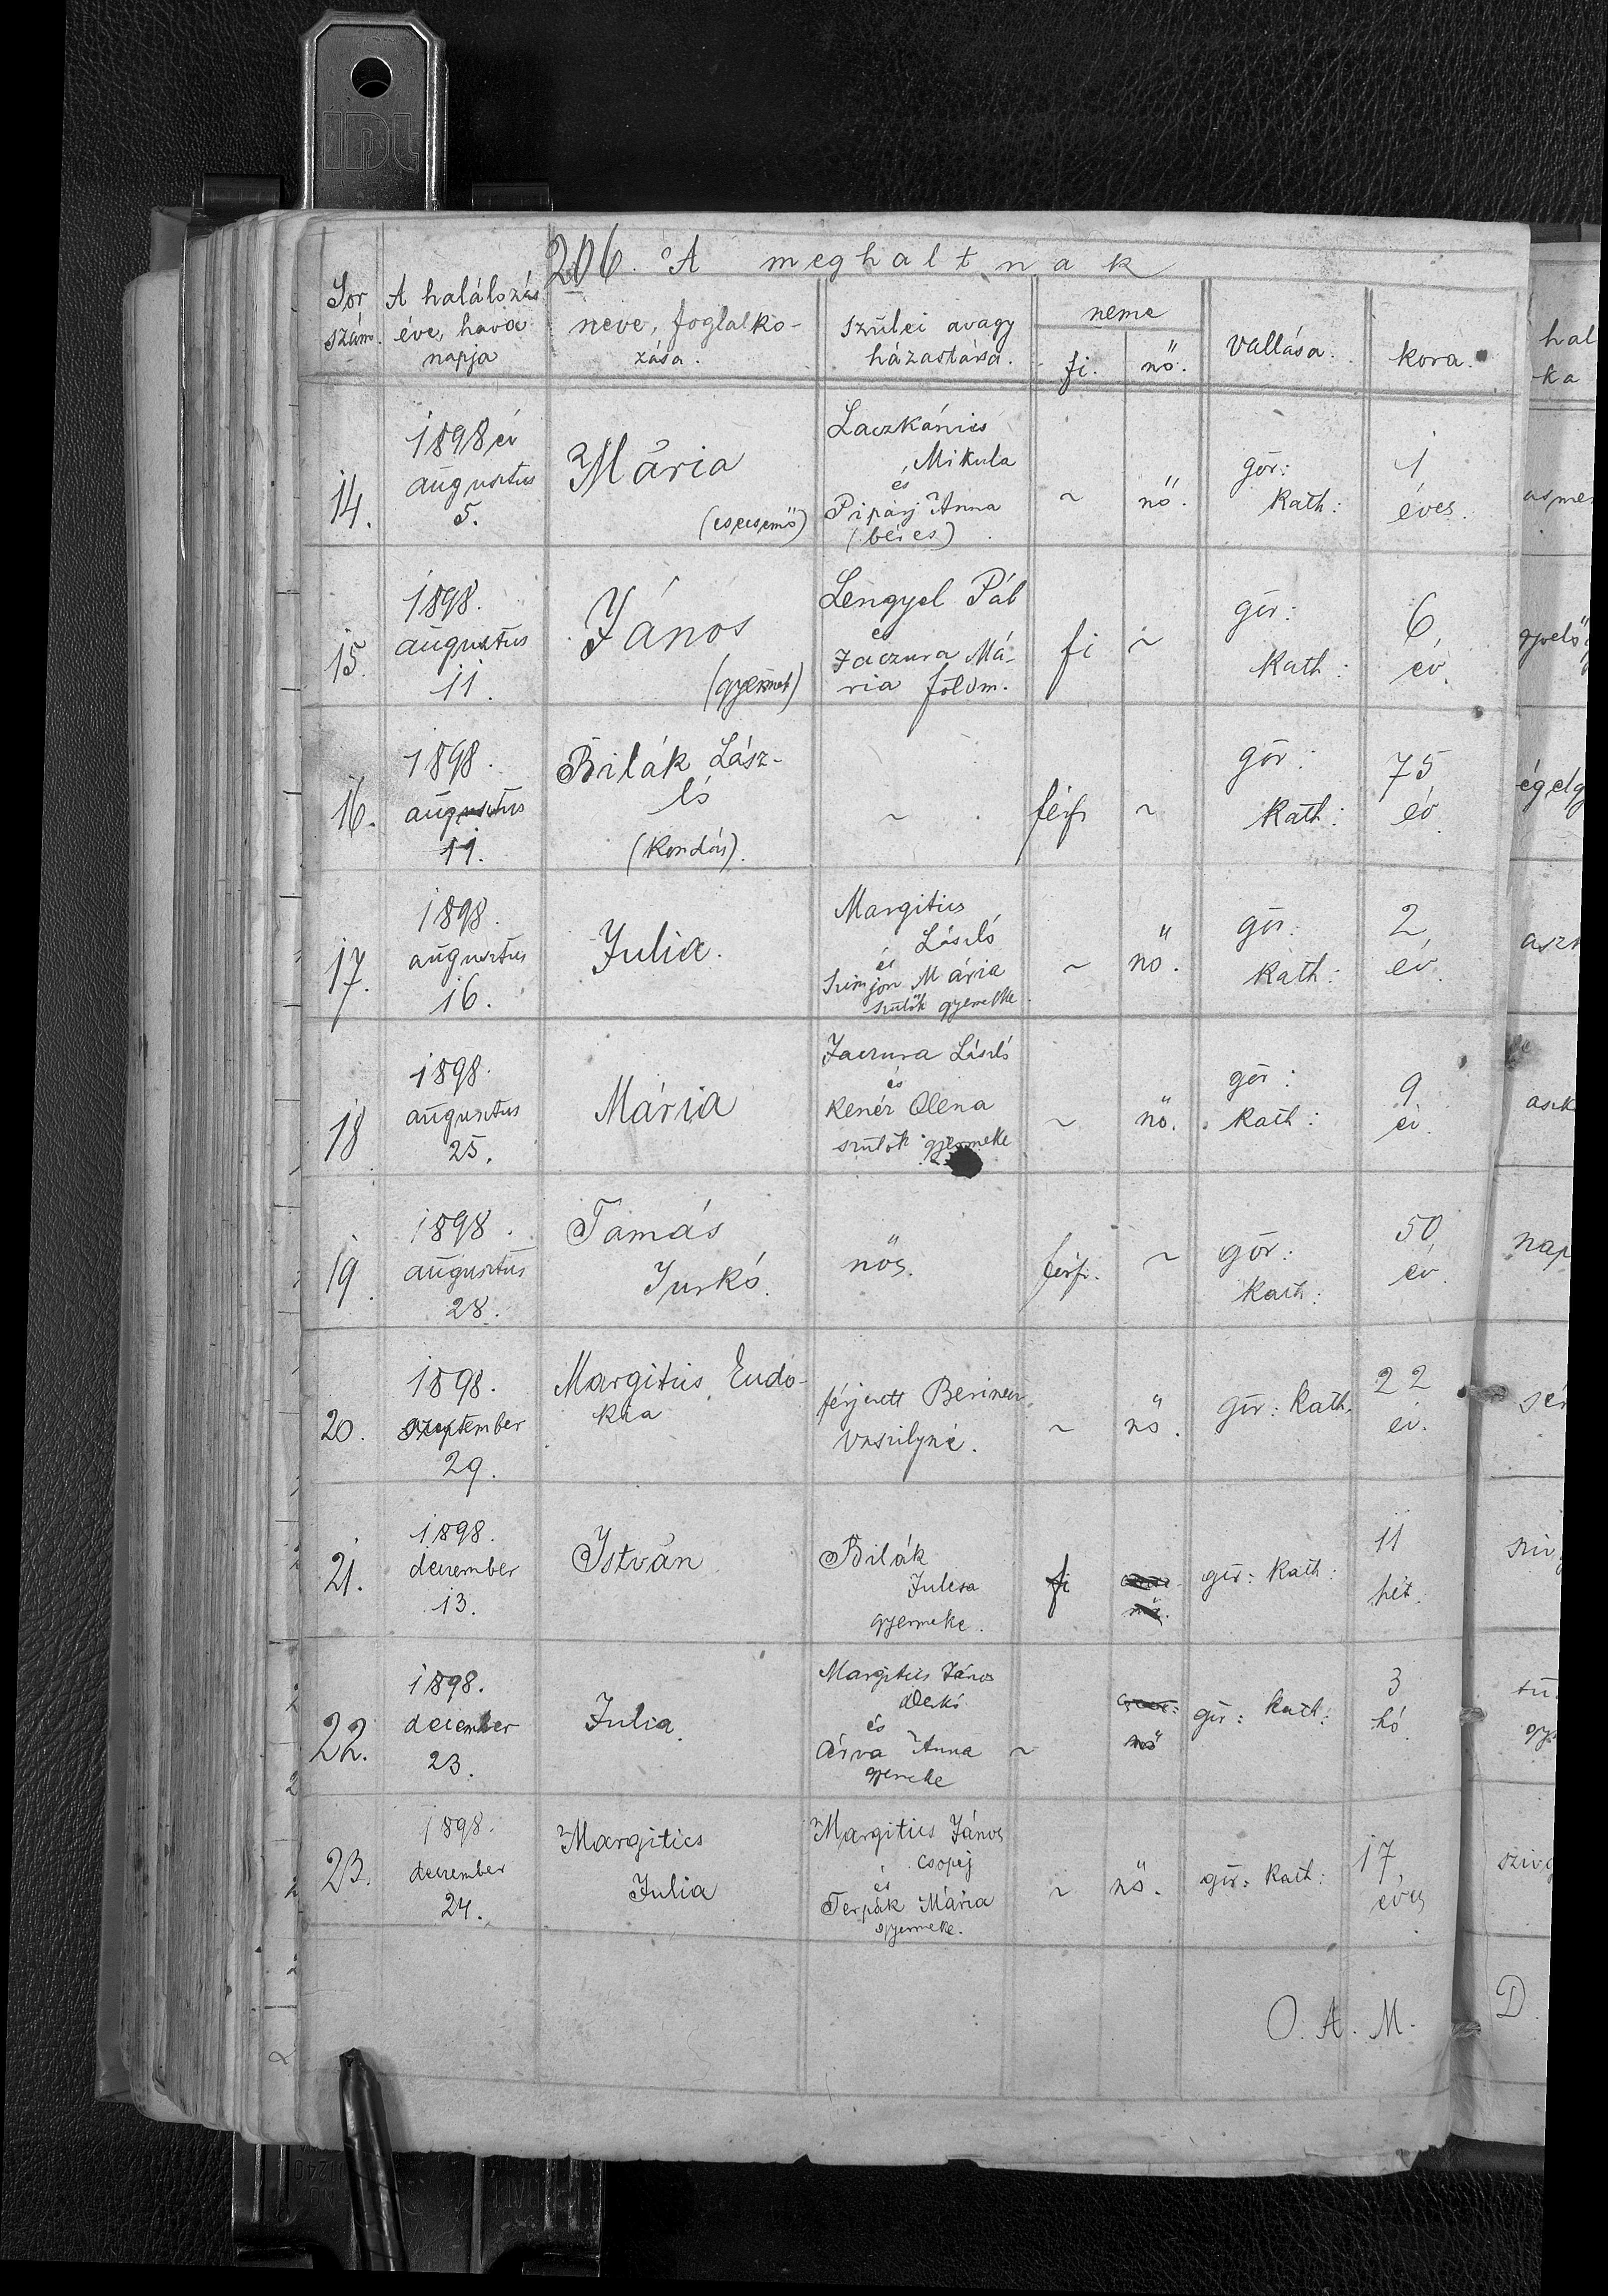 IDL
206. A meghaltnak
Sor szám. A halálozás éve, hava napja neve, foglalkozása. szülei avagy házastársa. neme fi. nő. vallása. kora.
hal
ka
14. 1898 év augusztus 5. Mária (csecsemő) Laczkánics Mikula és Pipás Anna (béres) ~ nő. gör: kath: 1 éves.
15. 1898. augusztus 11. János (gyermek) Lengyel Pál és Jaczura Mária földm. fi ~ gör: kath: 6 év.
16. 1898. augusztus 11. Bilák László (kondás). ~ férfi ~ gör: kath: 75 év
17. 1898. augusztus 16. Julia. Margitics László és Szimjon Mária szülők gyermeke ~ nő. gör: kath: 2 év.
18 1898. augusztus 25. Mária Jaczura László és Kenéz Olena szülők gyermeke ~ nő. gör: kath: 9 év.
19. 1898. augusztus 28. Tamás Jurkó. nős. férfi. ~ gör: kath: 50 év.
20. 1898. szeptember 29. Margitics Eudokia férjezett Vaszilyné. ~ nő. gör: kath. 22 év.
21. 1898. december 13. István Bilák Julcsa gyermeke. fi gör: kath: 11 hét.
22. 1898. december 23. Julia. Margitics János és Árva Anna gyermeke ~ nő gör: kath: 3 hó.
23. 1898. december 24. Margitics Julia Margitics János csopej és Terpák Mária gyermeke. ~ nő. gör: kath: 17 éves
O. A. M.
D